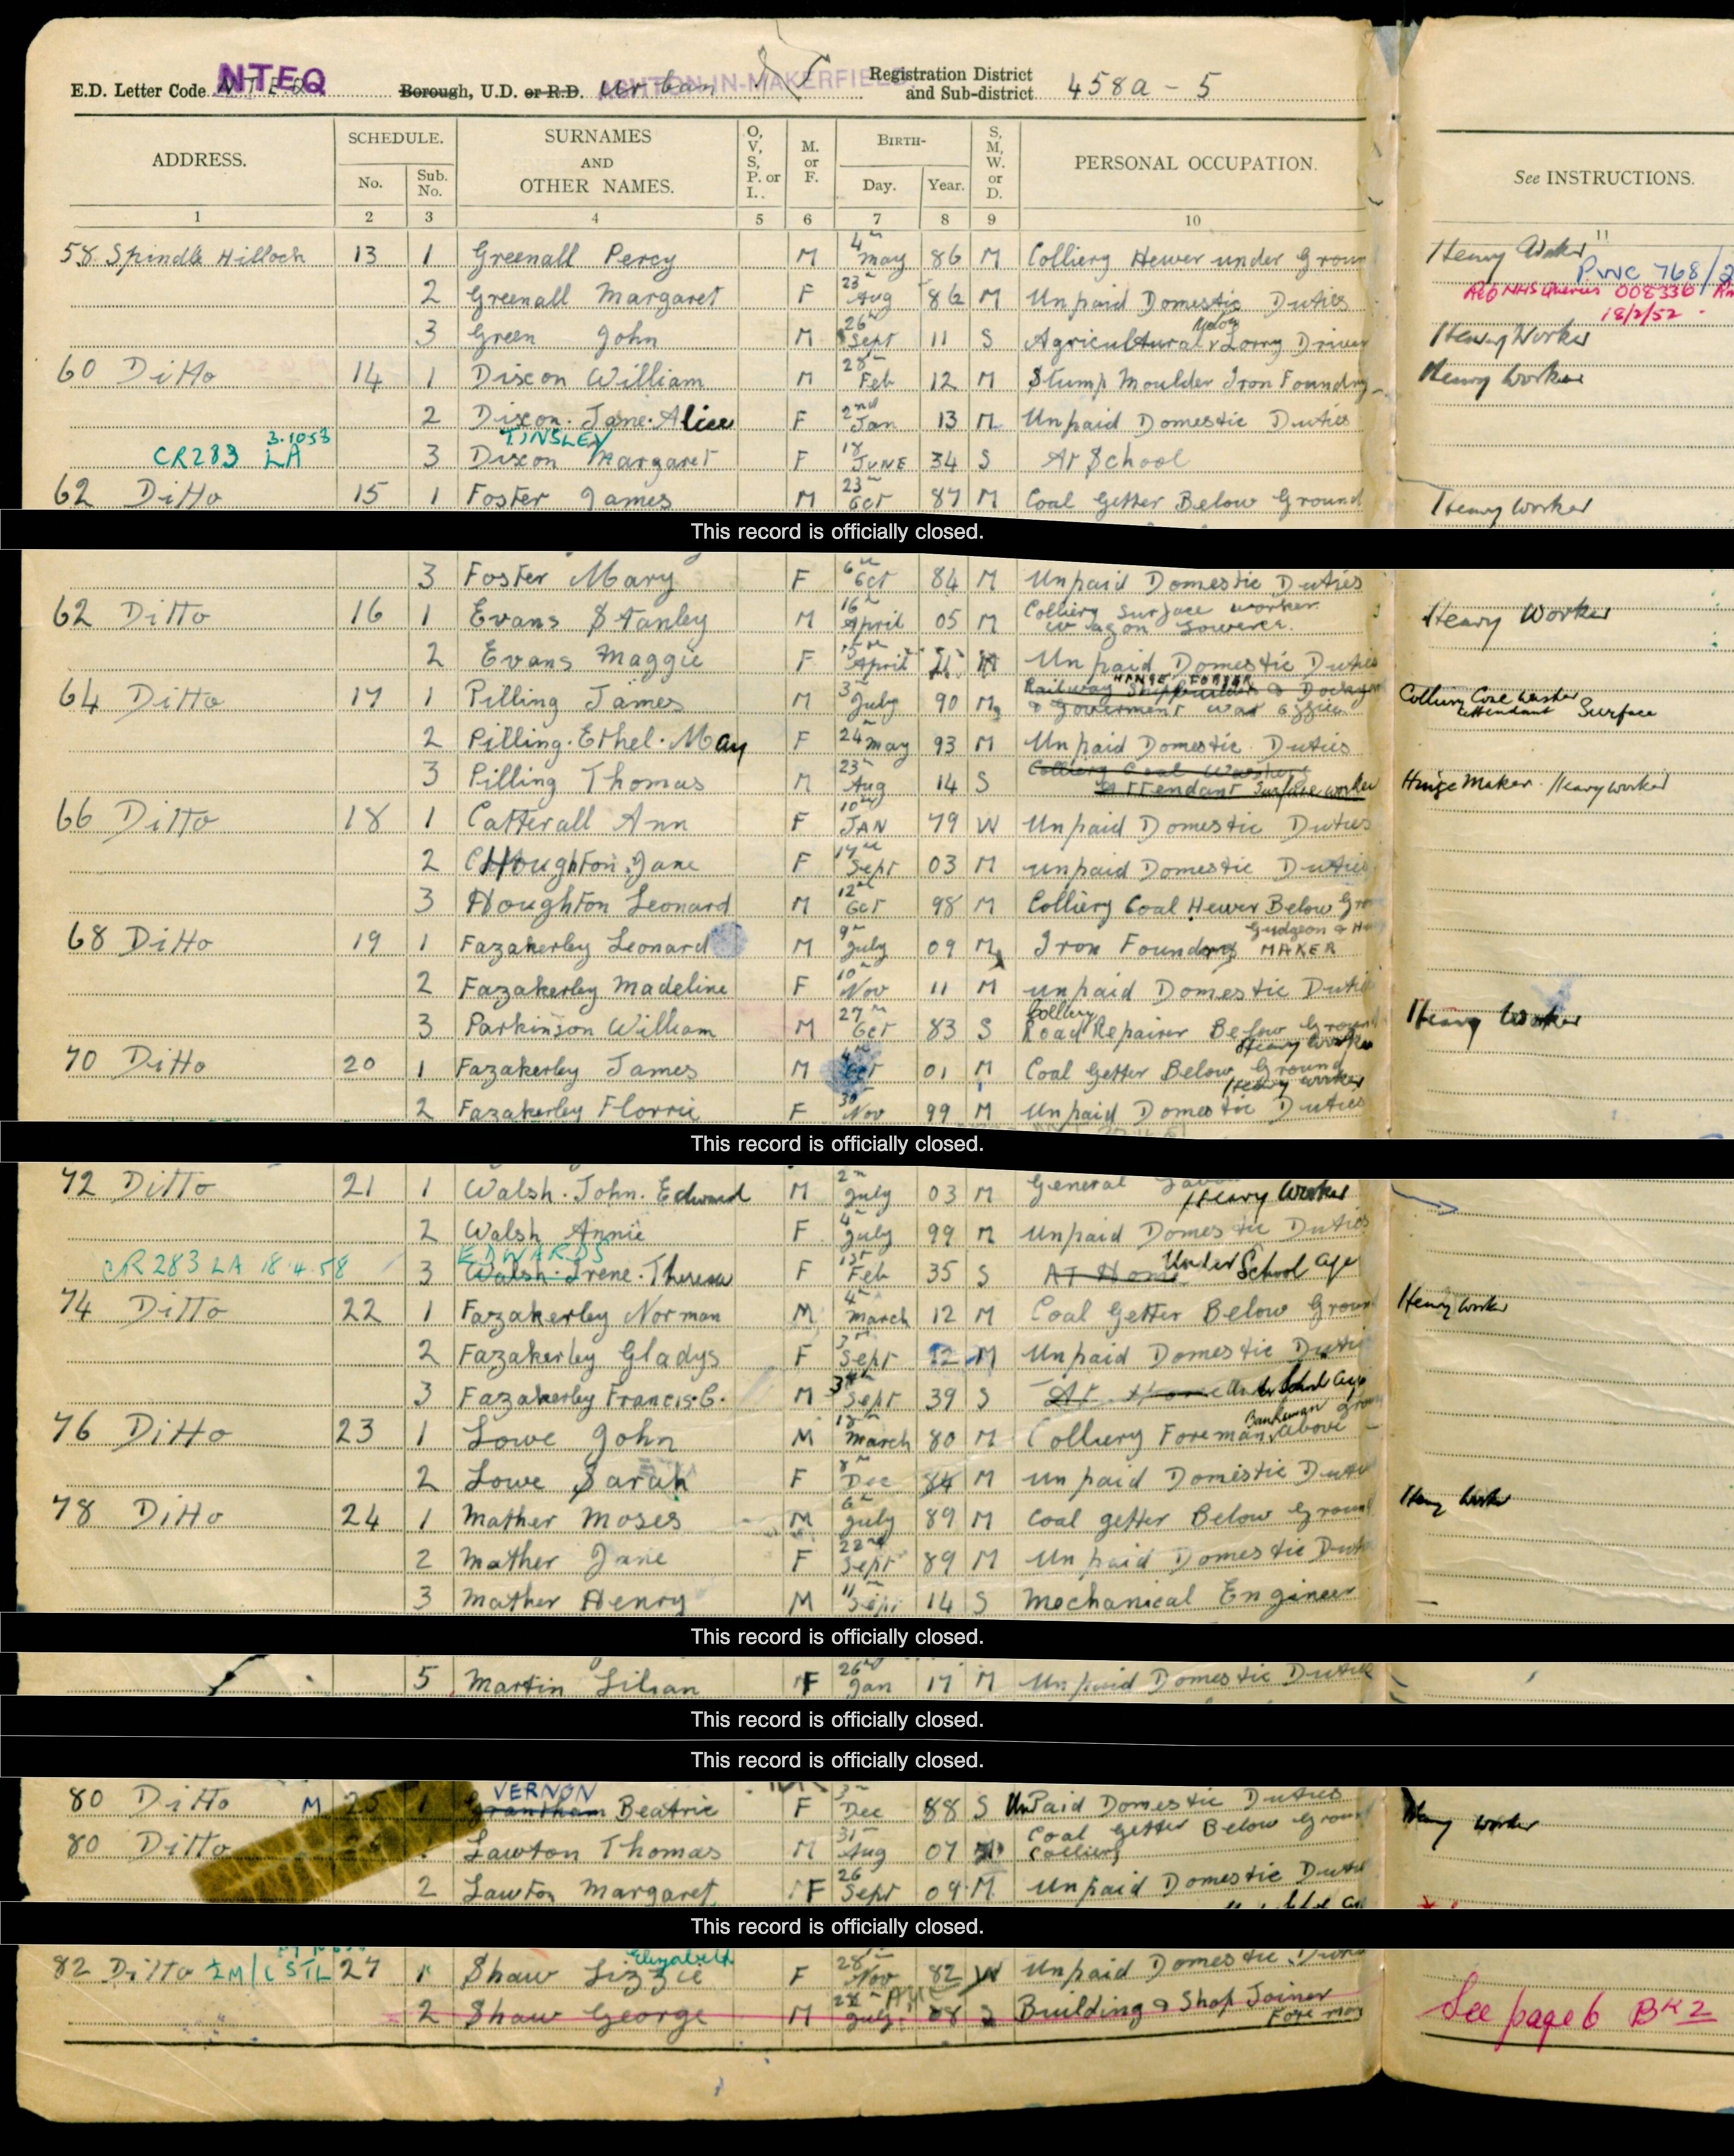 E.D. Letter Code NTEQ NTEQ Borough, U.D. or R.D. Urban ASHTON-IN-MAKERFIELD Registration District and Sub-district 458a - 5
ADDRESS. SCHEDULE. No. Sub. No. SURNAMES AND OTHER NAMES. O, V, S, P. or I. M. or F. BIRTH- Day. Year. S, M, W. or D. PERSONAL OCCUPATION. See INSTRUCTIONS.
1 2 3 4 5 6 7 8 9 10 11
58 Spindle Hilloch 13 1 Greenall Percy M 4th May 86 M Colliery Hewer under Groun Heavy Worker
PWC 768/2
2 Greenall Margaret F 23rd Aug 86 M Unpaid Domestic Duties NHS Queries 008336
18/2/52
3 Green John M 26th Sept 11 S Agricultural Motor Lorry Driver Heavy Worker
60 Ditto 14 1 Dixon William M 28th Feb 12 M Stump Moulder Iron Foundry Heavy Worker
2 Dixon. Jane. Alice F 2nd Jan 13 M Unpaid Domestic Duties
CR283 3.10 53 LA TINSLEY
3 Dixon Margaret F 18 JUNE 34 S At School
62 Ditto 15 1 Foster James M 23rd Oct 87 M Coal Getter Below Ground Heavy Worker
This record is officially closed.
3 Foster Mary F 6th Oct 84 M Unpaid Domestic Duties
62 Ditto 16 1 Evans Stanley M 16th April 05 M Colliery Surface worker Wagon Lowerer. Heavy Worker
2 Evans Maggie F 5th April M Unpaid Domestic Duties
64 Ditto 17 1 Pilling James M 3rd July 90 M Railway Shipbuilder & Dockyar HINGE FORGER & Goverment War Office Colliery Coal Washer Attendant Surface
2 Pilling. Ethel. May F 24th May 93 M Unpaid Domestic Duties
3 Pilling Thomas M 23rd Aug 14 S Colliery Coal Washery Attendant Surface worker Hinge Maker. Heavy worker
66 Ditto 18 1 Catterall Ann F 10th JAN 79 W Unpaid Domestic Duties
2 Houghton. Jane F 14th Sept 03 M unpaid Domestic Duties
3 Houghton Leonard M 12th Oct 98 M Colliery Coal Hewer Below Gro
68 Ditto 19 1 Fazakerley Leonard M 9th July 09 M Iron Foundry Gudgeon & MAKER
2 Fazakerley Madeline F 10th Nov 11 M unpaid Domestic Duties
3 Parkinson William M 27th Oct 83 S Colliery Road Repairer Below Ground Heavy Worker Heavy Worker
70 Ditto 20 1 Fazakerley James M 4th Oct 01 M Coal Getter Below Ground Heavy worker
2 Fazakerley Florrie F 30th Nov 99 M Unpaid Domestic Duties
This record is officially closed.
72 Ditto 21 1 Walsh. John. Edward M 2nd July 03 M General Heavy Worker
2 Walsh Annie F 4th July 99 M Unpaid Domestic Duties
CR 283 LA 18.4.58 EDWARDS
3 Walsh. Irene. Theresa F 15th Feb 35 S At Home Under School age
74 Ditto 22 1 Fazakerley Norman M 4th March 12 M Coal Getter Below Groun Heavy Worker
2 Fazakerley Gladys F 3rd Sept 12 M Unpaid Domestic Duties
3 Fazakerley Francis. G. M Sept 39 S At Home Under School Age
76 Ditto 23 1 Lowe John M 18th March 80 M Colliery Foreman Banksman above Groun
2 Lowe Sarah F 8th Dec 84 M Unpaid Domestic Duties
78 Ditto 24 1 Mather Moses M 6th July 89 M Coal getter Below Ground Heavy Worker
2 Mather Jane F 22nd Sept 89 M Unpaid Domestic Duties
3 Mather Henry M 11th Sept 14 S Mechanical Engineer
This record is officially closed.
5 Martin Lilian F 26th Jan 17 M Unpaid Domestic Duties
This record is officially closed.
This record is officially closed.
VERNON
80 Ditto M 25 1 Grantham Beatrice F 3rd Dec 88 S UnPaid Domestic Duties
80 Ditto 26 Lawton Thomas M 31st Aug 07 M Coal Getter Below Ground Colliery Heavy worker
2 Lawton Margaret F 26 Sept 09 M Unpaid Domestic Duties
This record is officially closed.
82 Ditto 27 1 Shaw Lizzie Elizabeth F 28th Nov 82 W Unpaid Domestic Duties
2 Shaw George M July 08 Building & Shop Joiner Fore man See page 6 BK 2